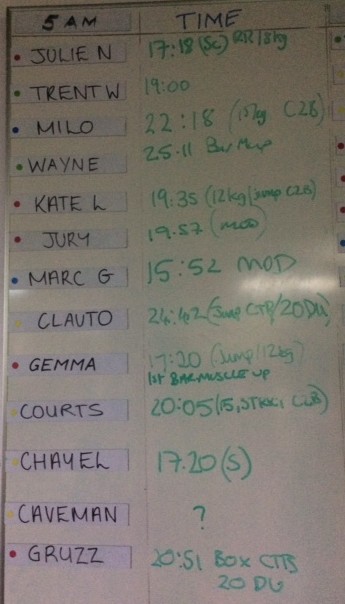 5 AM TIME
JULIE N 17:18 (Sc) RR/8kg
TRENT W 19:00
MILO 22:18 (15kg C2B)
WAYNE 25.11 Bar Mup
KATE L 19:35 (12kg/jump C2B)
JURY 19.57 (MOD)
MARC G 15:52 MOD
CLAUTO 24:42 (Jump CTB/20DU)
GEMMA 17:20 (Jump/12kg)
1st BAR MUSCLE UP
COURTS 20:05 (15, C2B)
CHAYEL 17.20 (S)
CAVEMAN ?
GRUZZ 20:51 BOX CTB
20 DU